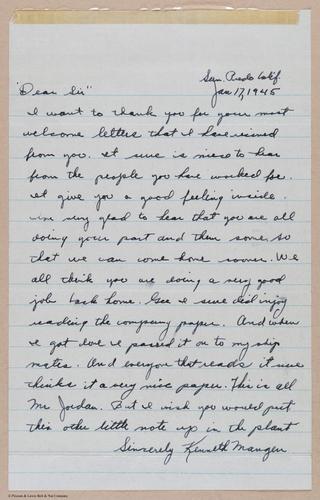 San Pedro Calif
Jan 17, 1945
"Dear Sir"
I want to thank you for your most
welcome letters that I have received
from you. It sure is nice to hear
from the people you have worked for.
It give you a good feeling inside.
I'm very glad to hear that you are all
doing your part and then some, so
that we can come home sooner. We
all think you are doing a very good
job back home. Gee I sure did enjoy
reading the company paper. And when
I got done I passed it on to my ship
mates. And everyone that reads it sure
thinks it a very nice paper. This is all
Mr Jordan. But I wish you would put
this other little note up in the plant
Sincerely Kenneth
© Pittston & Lewis Bolt & Nut Company